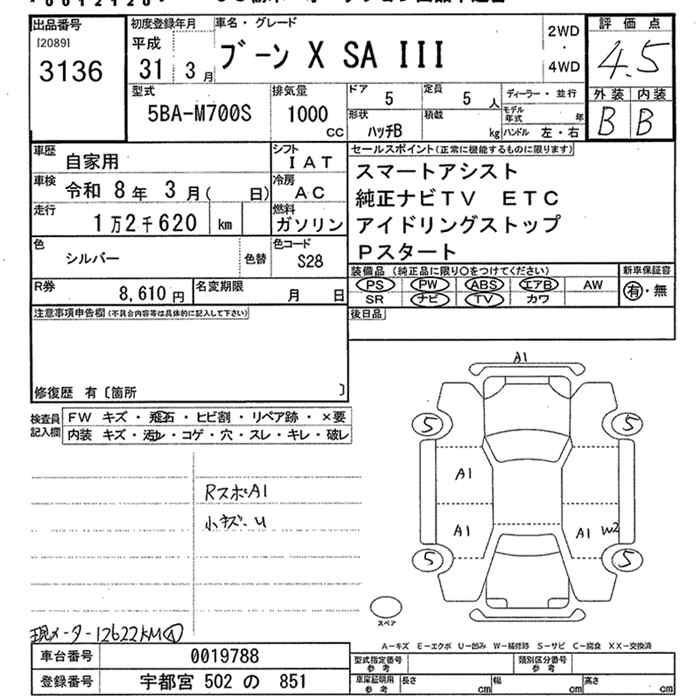 出品番号
[2089]
3136
初度登録年月
平成
31 3月
車名・グレード
ブーン X SA III
2WD
・
4WD
評価点
4.5
外装 内装
B B
型式
5BA-M700S
排気量
1000
CC
ドア
5
定員
5人
形状
ハッチB
積載
kg
ディーラー・並行
モデル年式 年
ハンドル 左・右
車歴
自家用
シフト
IAT
車検
令和 8年 3月( 日)
冷房
AC
走行
1万2千620 km
燃料
ガソリン
色
シルバー
色替
色コード
S28
R券
8,610円
名変期限
月 日
セールスポイント(正常に機能するものに限ります)
スマートアシスト
純正ナビTV ETC
アイドリングストップ
Pスタート
装備品(純正品に限り○をつけてください)
PS PW ABS エアB AW
SR ナビ TV カワ
新車保証容
有・無
後日品
注意事項申告欄(不具合内容等は具体的に記入して下さい)
修復歴 有〔箇所 〕
検査員記入欄
FW キズ・飛石・ヒビ割・リペア跡・×要
内装 キズ・汚レ・コゲ・穴・スレ・キレ・破レ
RスポA1
小キズ・U
現メーター12622KM
A1
5 5
A1
A1 A1 W2
5 5
スペア
A-キズ E-エクボ U-凹み W-補修跡 S-サビ C-腐食 XX-交換済
車台番号
0019788
登録番号
宇都宮 502 の 851
型式指定番号
参考
類別区分番号
参考
車庫証明用
参考
長さ cm
幅 cm
高さ cm